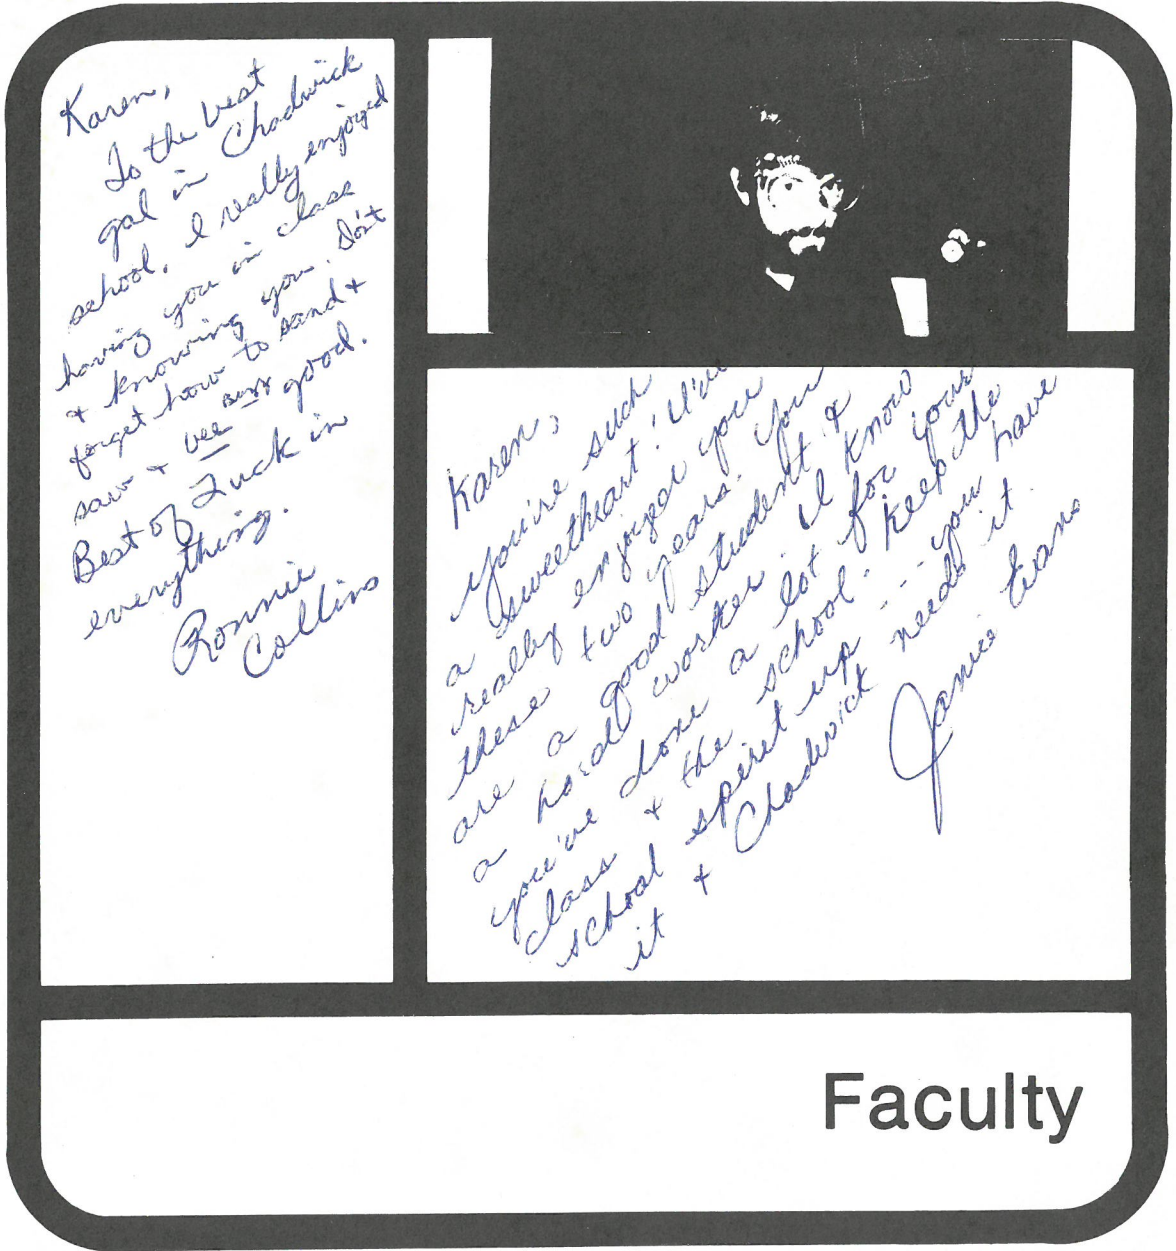 Karen,
To the best
gal in Chadwick
school. I really enjoyed
having you in class
& knowing you. Don't
forget how to sand &
saw & good.
Best of Luck in
everything.
Ronnie
Collins
Karen,
you're such
a sweetheart! I've
really enjoyed you
these two years. You
are a good student &
a hard worker. I know
you've done a lot for your
class & the school. Keep the
school spirit up - - - you have
it & Chadwick needs it.
Janice Evans
Faculty